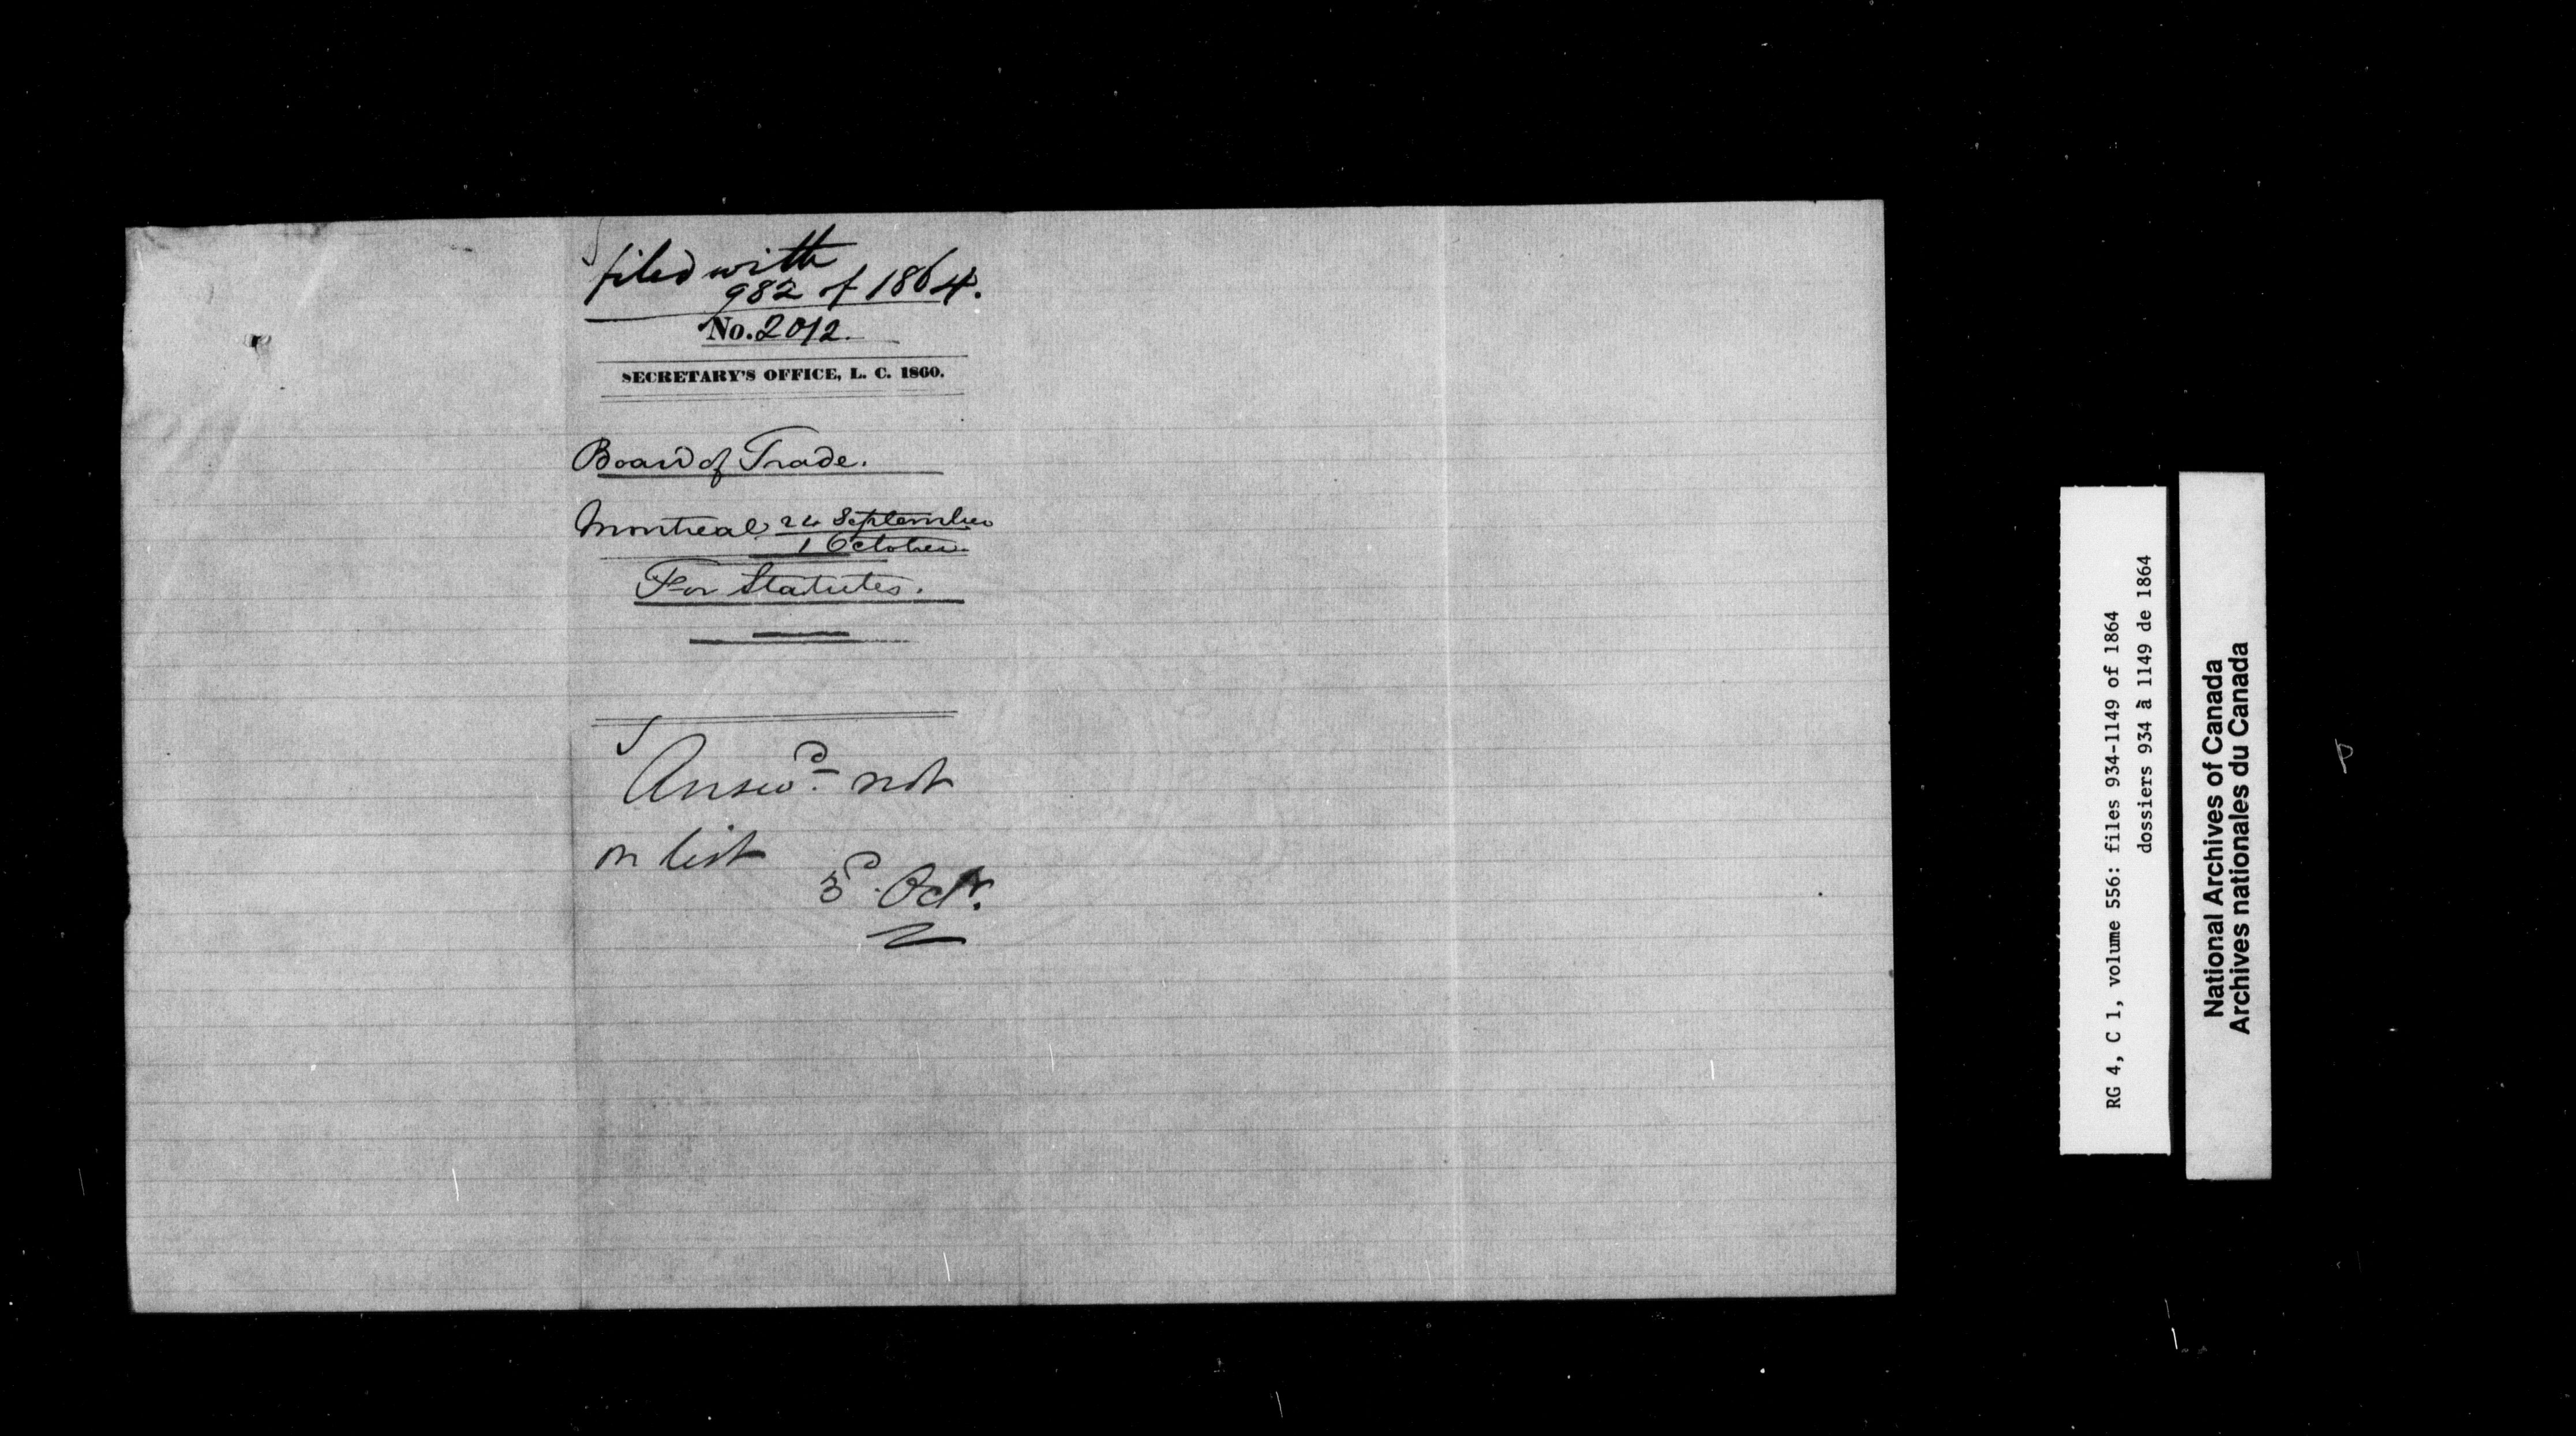 filed with
982 of 1864.
No. 2012.
SECRETARY'S OFFICE, L. C. 1860.
Board of Trade.
Montreal 24 September
1 October
For Statutes.
Answd. not
on list
3d. Octr.
RG 4, C 1, volume 556: files 934-1149 of 1864
dossiers 934 à 1149 de 1864
National Archives of Canada
Archives nationales du Canada